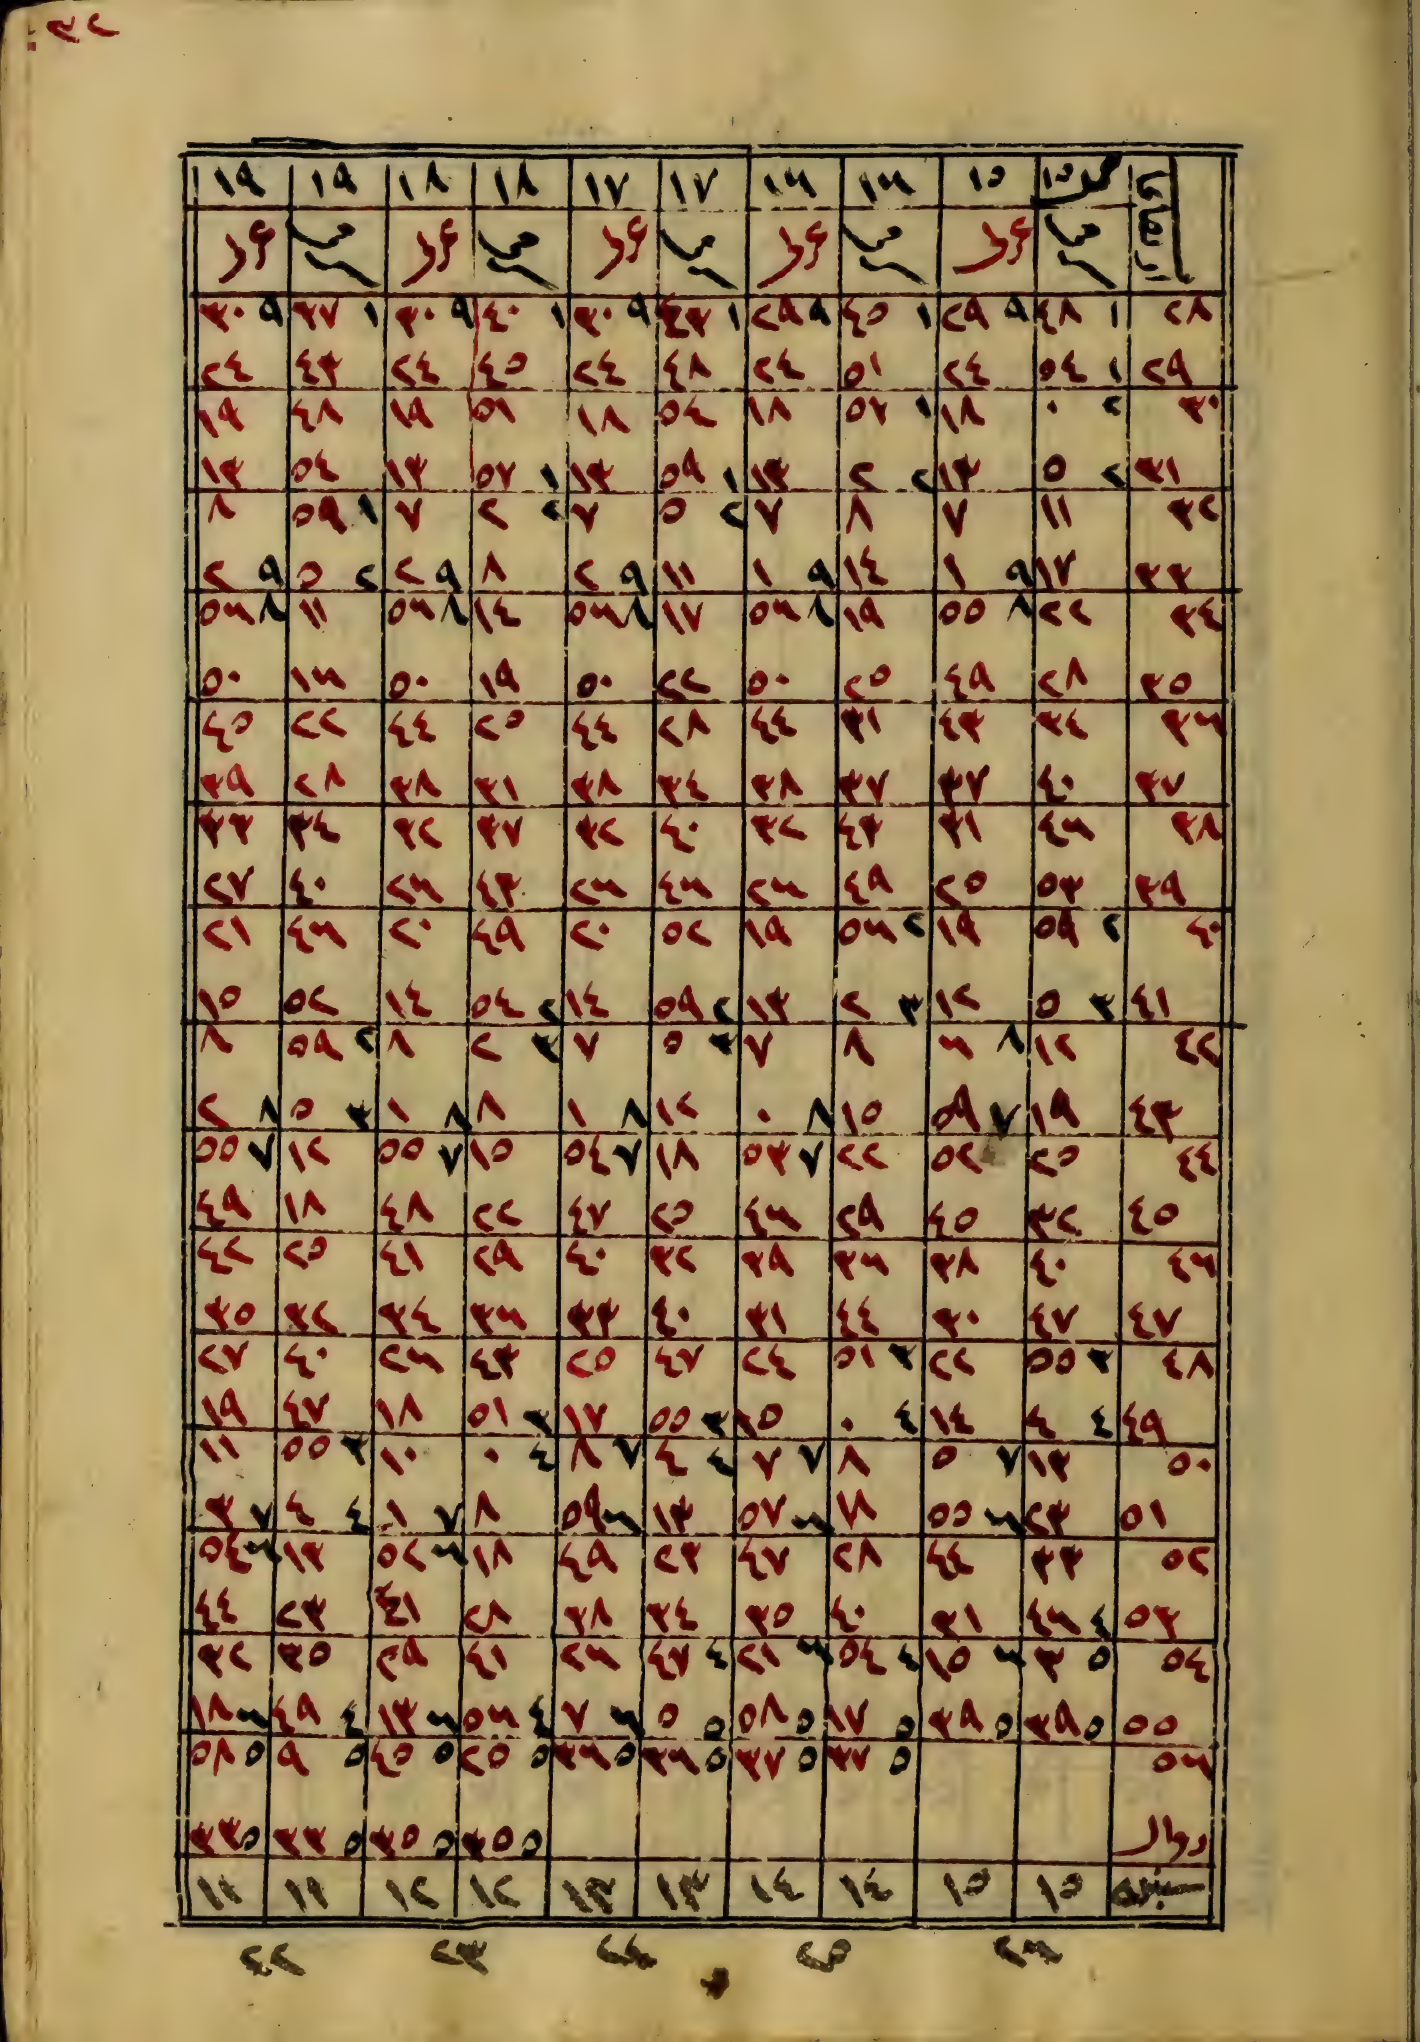 ٣٢
١٥ ١٥ ١٦ ١٦ ١٧ ١٧ ١٨ ١٨ ١٩ ١٩
٢٨ ١ ٤٨ ٩ ٢٩ ١ ٤٥ ٩ ٢٩ ١ ٤٣ ٩ ٣٠ ١ ٤٠ ٩ ٣٠ ١ ٣٧ ٩ ٣٠
٢٩ ١ ٥٤ ٢٤ ٥١ ٢٤ ٤٨ ٢٤ ٤٥ ٢٤ ٤٣ ٢٤
٣٠ ٢ ٠ ١٨ ١ ٥٧ ١٨ ٥٤ ١٨ ٥١ ١٩ ٤٨ ١٩
٣١ ٢ ٥ ١٣ ٢ ٢ ١٣ ١ ٥٩ ١٣ ١ ٥٧ ١٣ ٥٤ ١٣
٣٢ ١١ ٧ ٨ ٧ ٢ ٥ ٧ ٢ ٢ ٧ ١ ٥٩ ٨
٣٣ ١٧ ٩ ١ ١٤ ٩ ١ ١١ ٩ ٢ ٨ ٩ ٢ ٢ ٥ ٩ ٢
٣٤ ٢٢ ٨ ٥٥ ١٩ ٨ ٥٦ ١٧ ٨ ٥٦ ١٤ ٨ ٥٦ ١١ ٨ ٥٦
٣٥ ٢٨ ٤٩ ٢٥ ٥٠ ٢٢ ٥٠ ١٩ ٥٠ ١٦ ٥٠
٣٦ ٣٤ ٤٣ ٣١ ٤٤ ٢٨ ٤٤ ٢٥ ٤٤ ٢٢ ٤٥
٣٧ ٤٠ ٣٧ ٣٧ ٣٨ ٣٤ ٣٨ ٣١ ٣٨ ٢٨ ٣٩
٣٨ ٤٦ ٣١ ٤٣ ٣٢ ٤٠ ٣٢ ٣٧ ٣٢ ٣٤ ٣٣
٣٩ ٥٣ ٢٥ ٤٩ ٢٦ ٤٦ ٢٦ ٤٣ ٢٦ ٤٠ ٢٧
٤٠ ٢ ٥٩ ١٩ ٢ ٥٦ ١٩ ٥٢ ٢٠ ٤٩ ٢٠ ٤٦ ٢١
٤١ ٣ ٥ ١٢ ٣ ٢ ١٣ ٢ ٥٩ ١٤ ٢ ٥٤ ١٤ ٥٢ ١٥
٤٢ ١٢ ٨ ٦ ٨ ٧ ٣ ٥ ٧ ٣ ٢ ٨ ٢ ٥٩ ٨
٤٣ ١٩ ٧ ٥٩ ١٥ ٨ ٠ ١٢ ٨ ١ ٨ ٨ ١ ٣ ٥ ٨ ٢
٤٤ ٢٥ ٥٢ ٢٢ ٧ ٥٣ ١٨ ٧ ٥٤ ١٥ ٧ ٥٥ ١٢ ٧ ٥٥
٤٥ ٣٢ ٤٥ ٢٩ ٤٦ ٢٥ ٤٧ ٢٢ ٤٨ ١٨ ٤٩
٤٦ ٤٠ ٣٨ ٣٦ ٣٩ ٣٢ ٤٠ ٢٩ ٤١ ٢٥ ٤٢
٤٧ ٤٧ ٣٠ ٤٤ ٣١ ٤٠ ٣٣ ٣٦ ٣٤ ٣٢ ٣٥
٤٨ ٣ ٥٥ ٢٢ ٣ ٥١ ٢٤ ٤٧ ٢٥ ٤٣ ٢٦ ٤٠ ٢٧
٤٩ ٤ ٤ ١٤ ٤ ٠ ١٥ ٣ ٥٥ ١٧ ٣ ٥١ ١٨ ٤٧ ١٩
٥٠ ١٣ ٧ ٥ ٨ ٧ ٧ ٤ ٤ ٧ ٨ ٤ ٠ ١٠ ٣ ٥٥ ١١
٥١ ٢٣ ٦ ٥٥ ١٨ ٦ ٥٧ ١٣ ٦ ٥٩ ٨ ٧ ١ ٤ ٤ ٧ ٣
٥٢ ٣٣ ٤٤ ٢٨ ٤٧ ٢٣ ٤٩ ١٨ ٦ ٥٢ ١٣ ٦ ٥٤
٥٣ ٤ ٤٦ ٣١ ٤٠ ٣٥ ٣٤ ٣٨ ٢٨ ٤١ ٢٣ ٤٤
٥٤ ٥ ٣ ٦ ١٥ ٤ ٥٤ ٦ ٢١ ٤ ٤٧ ٢٦ ٤١ ٢٩ ٣٥ ٣٢
٥٥ ٥ ٣٩ ٥ ٣٩ ٥ ١٧ ٥ ٥٨ ٥ ٥ ٦ ٧ ٤ ٥٦ ٦ ١٣ ٤ ٤٩ ٦ ١٨
٥٦ ٥ ٣٧ ٥ ٣٧ ٥ ٣٦ ٥ ٣٦ ٥ ٢٥ ٥ ٤٥ ٥ ٩ ٥ ٥٨
٥ ٣٥ ٥ ٣٥ ٥ ٣٣ ٥ ٣٣
١٥ ١٥ ١٤ ١٤ ١٣ ١٣ ١٢ ١٢ ١١ ١١
٢٦ ٢٥ ٢٤ ٢٣ ٢٢